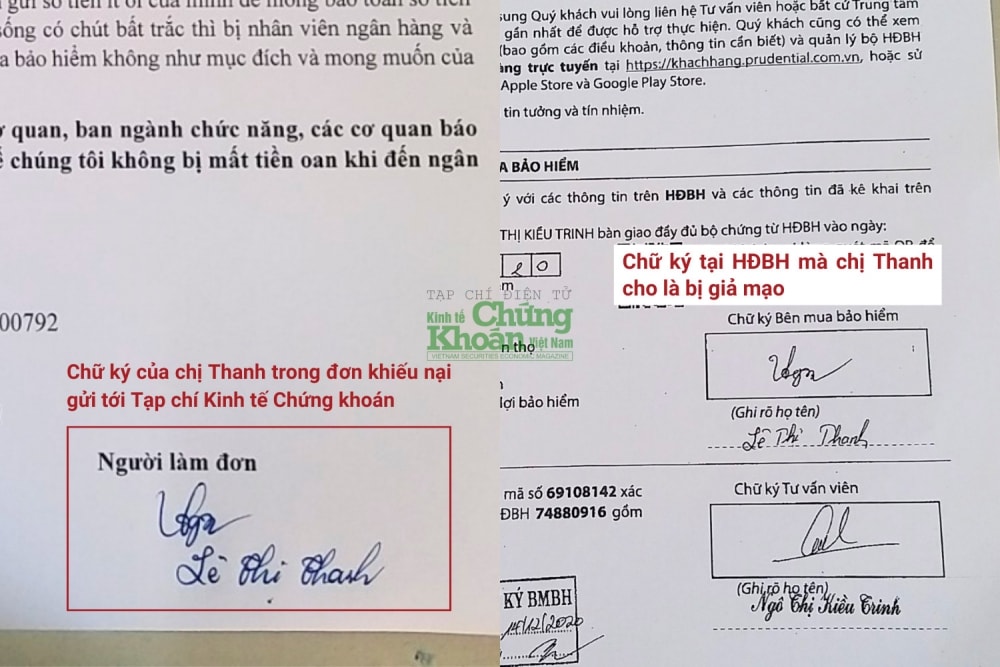 gửi số tiền ít ỏi của mình để mong bảo toàn số tiền
sống có chút bất trắc thì bị nhân viên ngân hàng và
a bảo hiểm không như mục đích và mong muốn của
quan, ban ngành chức năng, các cơ quan báo
chúng tôi không bị mất tiền oan khi đến ngân
00792
Chữ ký của chị Thanh trong đơn khiếu nại
gửi tới Tạp chí Kinh tế Chứng khoán
Người làm đơn
Lê Thị Thanh
sung Quý khách vui lòng liên hệ Tư vấn viên hoặc bất cứ Trung tâm
gần nhất để được hỗ trợ thực hiện. Quý khách cũng có thể xem
(bao gồm các điều khoản, thông tin cần biết) và quản lý bộ HĐBH
àng trực tuyến tại https://khachhang.prudential.com.vn, hoặc sử
Apple Store và Google Play Store.
tin tưởng và tín nhiệm.
A BẢO HIỂM
ý với các thông tin trên HĐBH và các thông tin đã kê khai trên
THỊ KIỀU TRINH bàn giao đầy đủ bộ chứng từ HĐBH vào ngày:
20
Chữ ký tại HĐBH mà chị Thanh
cho là bị giả mạo
TẠP CHÍ ĐIỆN TỬ
Kinh tế Chứng
Khoán Việt Nam
VIETNAM SECURITIES ECONOMIC MAGAZINE
Chữ ký Bên mua bảo hiểm
n thọ
lợi bảo hiểm
(Ghi rõ họ tên)
Lê Thị Thanh
mã số 69108142 xác
ĐBH 74880916 gồm
Chữ ký Tư vấn viên
(Ghi rõ họ tên)
Ngô Thị Kiều Trinh
KÝ BMBH
14/12/2020